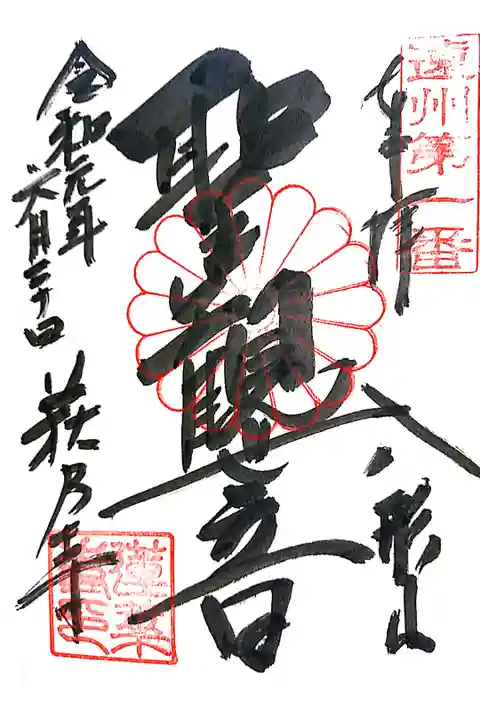 遠州第一番
奉拝
八形山
聖觀音
令和元年
六月二十四
萩乃寺
蓮華
寺印